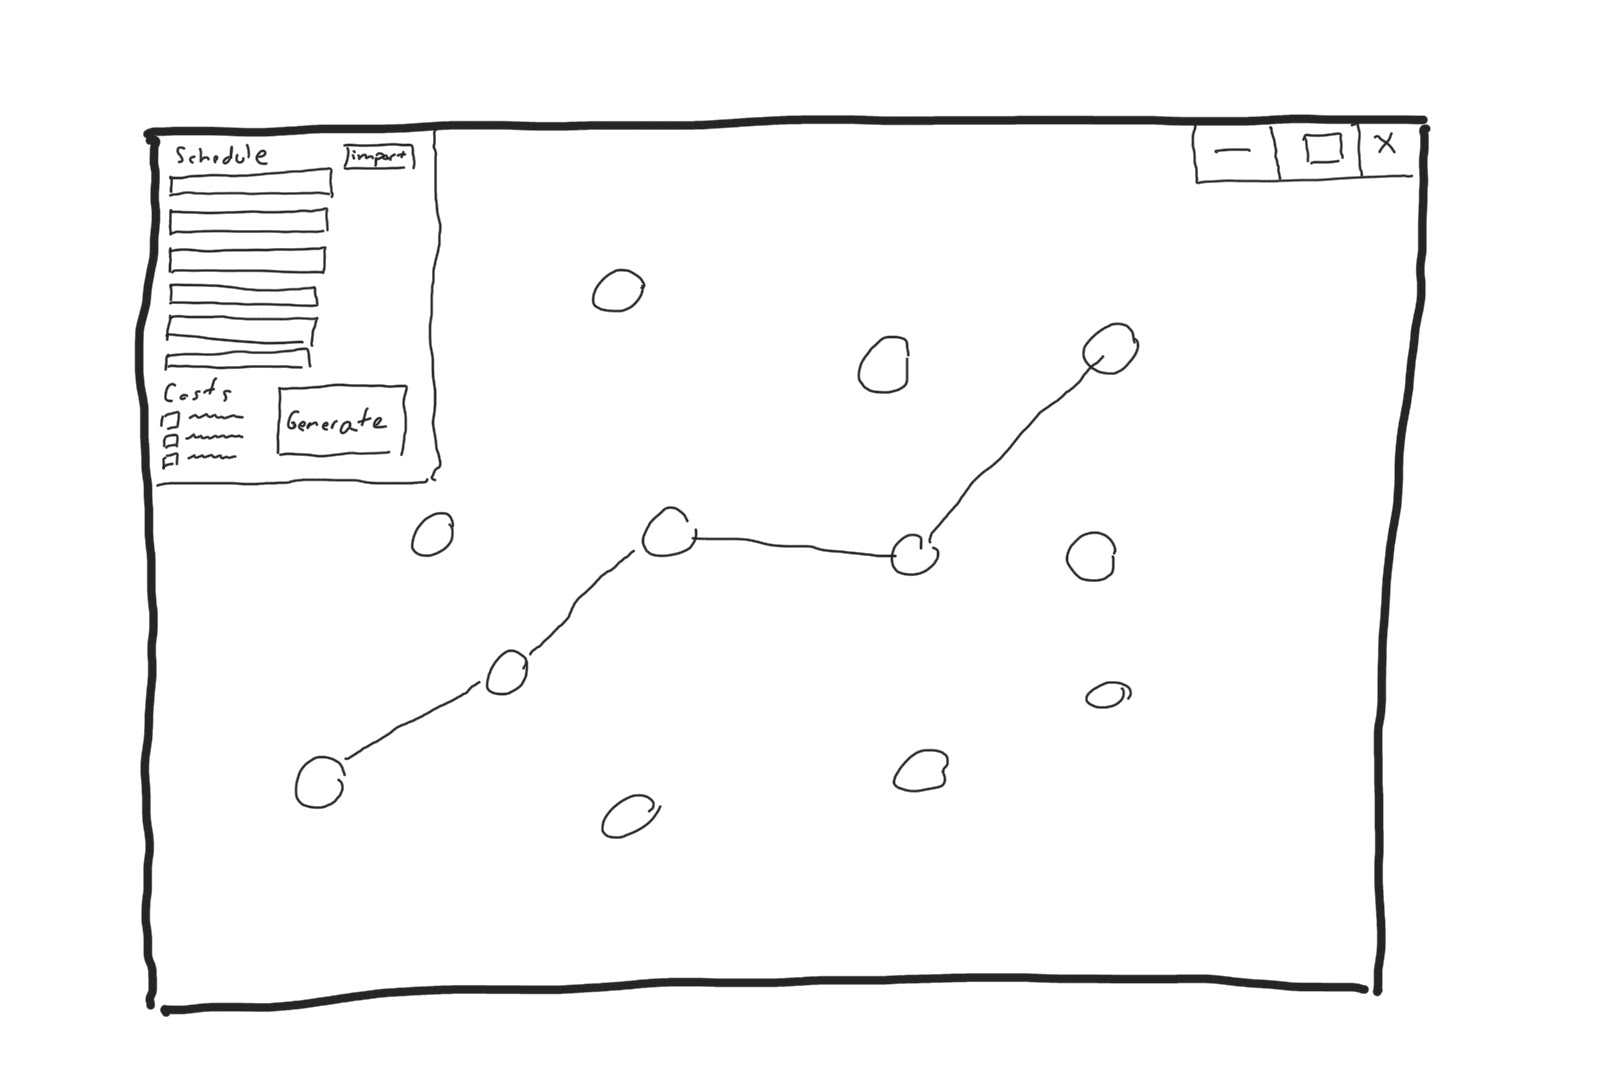 Schedule
import
Costs
Generate
X